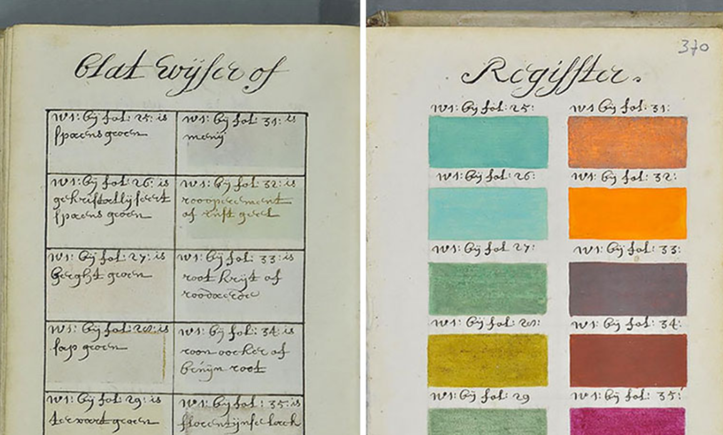 blat wijser of
n01: bij fol: 25: is
spaens groen
n01: bij fol: 31: is
menij
n01: bij fol: 26: is
gekristallijseert
spaens groen
n01: bij fol: 32: is
roooperement
of rust geel
n01: bij fol: 27: is
berght groen
n01: bij fol: 33: is
root krijt of
roodaerde
n01: bij fol: 28: is
sap groen
n01: bij fol: 34 is
roon oocker of
bruijn root
n01: bij fol: 29: is
terwart groen
n01: bij fol: 35: is
florentijnse lack
Regisster.
370
n01: bij fol: 25:
n01 bij fol: 31:
n01: bij fol: 26:
n01: bij fol: 32:
n01: bij fol: 27:
n01: bij fol: 33:
n01: bij fol: 28:
n01: bij fol: 34:
n01: bij fol: 29
n01: bij fol: 35: